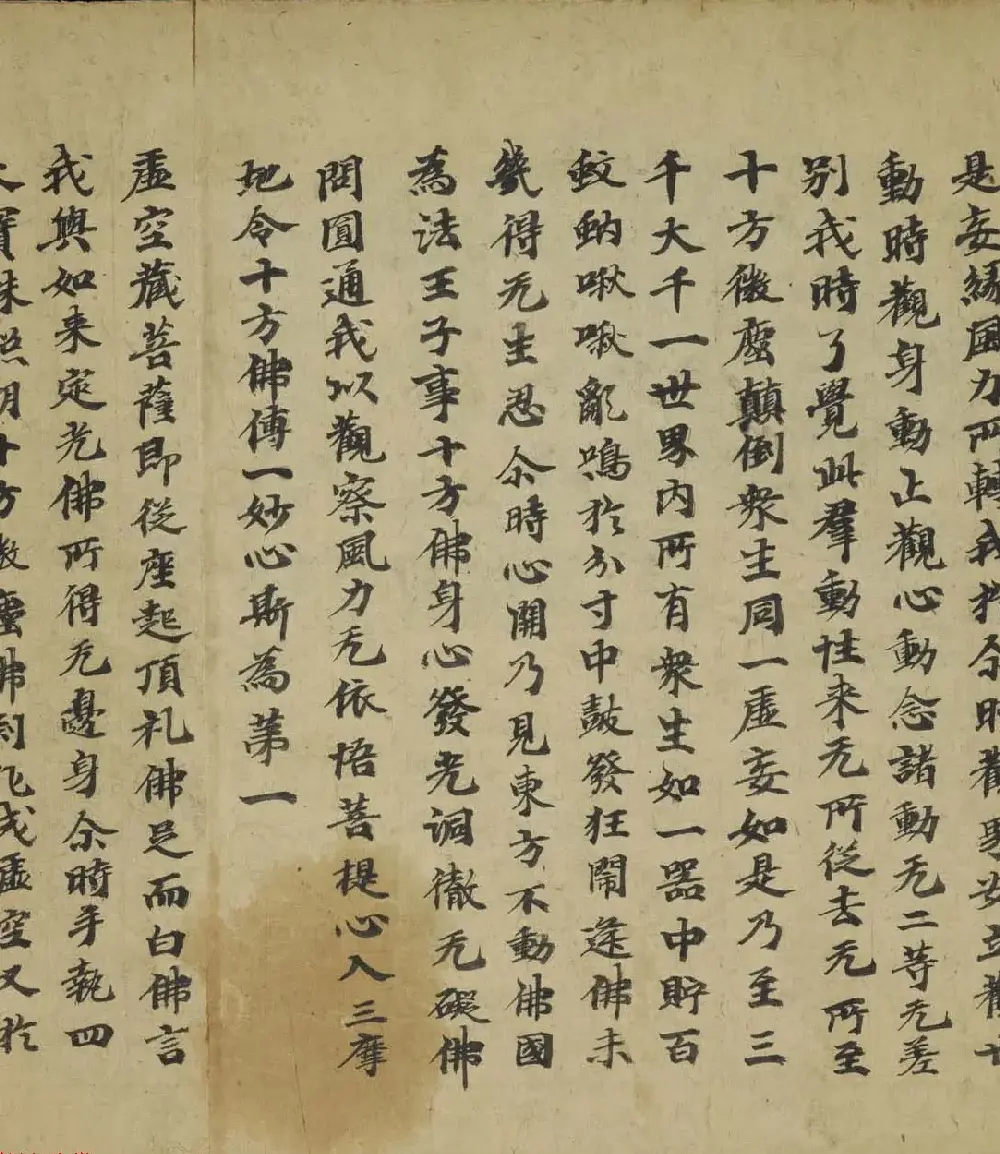 是妄緣風力所轉我於尒時觀界安立觀世
動時觀身動止觀心動念諸動无二等无差
別我時了覺此羣動性来无所從去无所至
十方微塵顛倒衆生同一虛妄如是乃至三
千大千一世界内所有衆生如一器中貯百
蚊蚋啾啾亂鳴於分寸中鼓發狂鬧逢佛未
幾得无生忍尒時心開乃見東方不動佛國
為法王子事十方佛身心發光洞徹无礙佛
問圓通我以觀察風力无依悟菩提心入三摩
地令十方佛傳一妙心斯為苐一
虛空藏菩薩即從座起頂礼佛足而白佛言
我與如来定光佛所得无邊身尒時手執四
大寶珠照明十方微塵佛刹化成虛空又於